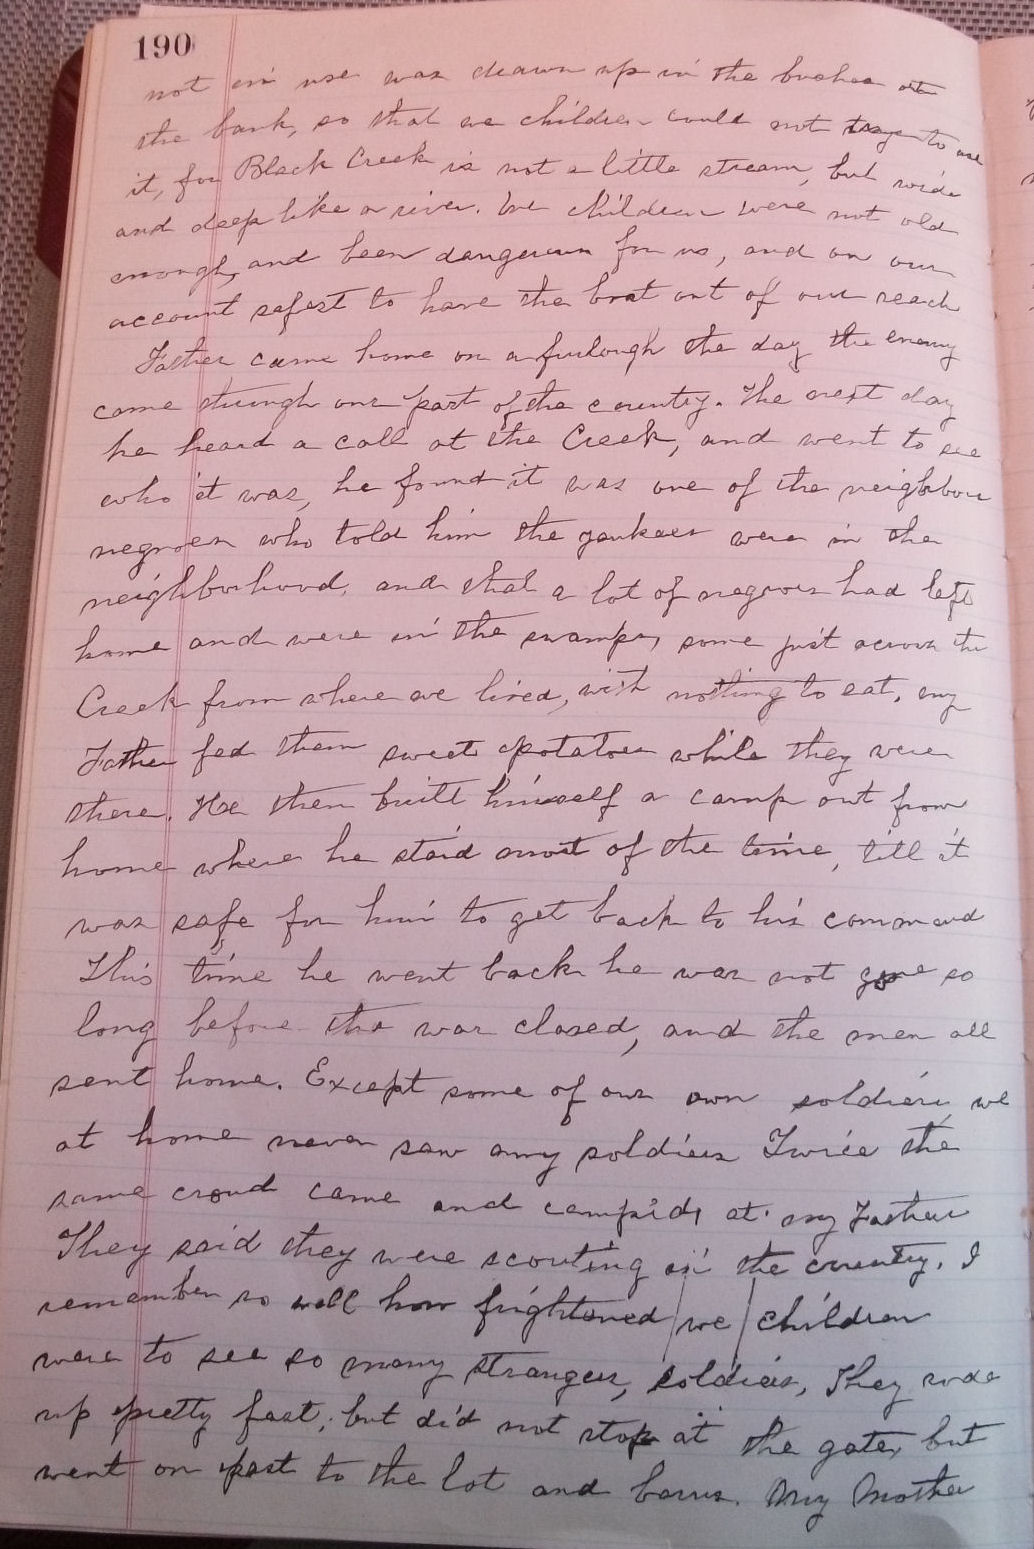 190
not in use was drawn up in the bushes on
the bank, so that we children could not try to use
it, for Black Creek is not a little stream, but wide
and deep like a river. We children were not old
enough, and been dangerous for us, and on our
account safest to have the boat out of our reach
Father came home on a furlough the day the enemy
come through our part of the country. The next day
he heard a call at the Creek, and went to see
who it was, he found it was one of the neighbors
negroes who told him the yankees were in the
neighborhood, and that a lot of negroes had left
home and were in the swamps, some just across the
Creek from where we lived, with nothing to eat, my
Father fed them sweet potatoes while they were
there. He then built himself a camp out from
home where he staid most of the time, till it
was safe for him to get back to his command
This time he went back he was not gone so
long before the war closed, and the men all
sent home. Except some of our own soldiers, we
at home never saw any soldiers Twice the
same croud came and campid, at my Father
They said they were scouting in the country. I
remember so well how frightened we children
were to see so many strangers, soldiers, They rode
up pretty fast, but did not stop at the gate, but
went on past to the lot and barns. My Mother